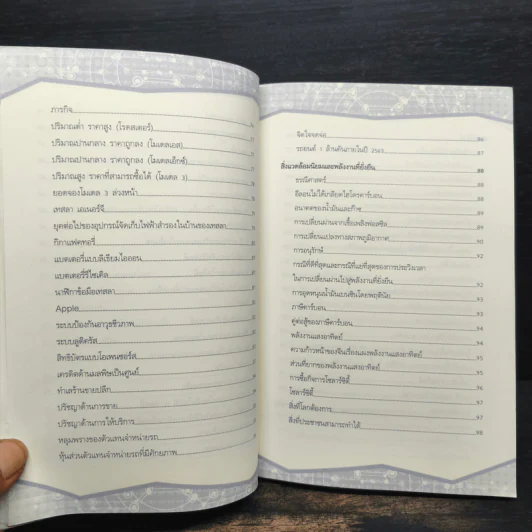 ภารกิจ
ปริมาณต่ำ ราคาสูง (โรดสเตอร์)
ปริมาณปานกลาง ราคาถูกลง (โมเดลเอส)
ปริมาณปานกลาง ราคาถูกลง (โมเดลเอ็กซ์)
ปริมาณสูง ราคาที่สามารถซื้อได้ (โมเดล 3)
ยอดจองโมเดล 3 ล่วงหน้า
เทสลา เอเนอร์จี
ยุคต่อไปของอุปกรณ์จัดเก็บไฟฟ้าสำรองในบ้านของเทสลา
กิกาแฟคทอรี่
แบตเตอรี่แบบลิเธียมไอออน
แบตเตอรี่รีไซเคิล
นาฬิกาข้อมือเทสลา
Apple
ระบบป้องกันอาวุธชีวภาพ
ระบบลูดิครัส
สิทธิบัตรแบบโอเพนซอร์ส
เครดิตด้านมลพิษเป็นศูนย์
ทำเลร้านขายปลีก
ปรัชญาด้านการขาย
ปรัชญาด้านการให้บริการ
หลุมพรางของตัวแทนจำหน่ายรถ
หุ้นส่วนตัวแทนจำหน่ายรถที่มีศักยภาพ
จิตใจจดจ่อ 86
รถยนต์ 1 ล้านคันภายในปี 2563 87
สิ่งแวดล้อมนิยมและพลังงานที่ยั่งยืน 88
ธรณีศาสตร์ 88
อีลอนไม่ได้เกลียดไฮโดรคาร์บอน 89
อนาคตของน้ำมันและก๊าซ 89
การเปลี่ยนผ่านจากเชื้อเพลิงฟอสซิล 89
การเปลี่ยนแปลงทางสภาพภูมิอากาศ 90
การอนุรักษ์ 92
กรณีที่ดีที่สุดและกรณีที่แย่ที่สุดของการประวิงเวลา
ในการเปลี่ยนผ่านไปสู่พลังงานที่ยั่งยืน 92
การอุดหนุนน้ำมันเบนซินโดยพฤตินัย 92
ภาษีคาร์บอน
คู่ต่อสู้ของภาษีคาร์บอน
พลังงานแสงอาทิตย์
ความก้าวหน้าของจีนเรื่องแผงพลังงานแสงอาทิตย์ 95
ส่วนที่ยากของพลังงานแสงอาทิตย์ 95
การซื้อกิจการโซลาร์ซิตี้ 96
โซลาร์ซิตี้ 97
สิ่งที่โลกต้องการ 97
สิ่งที่ประชาชนสามารถทำได้ 98